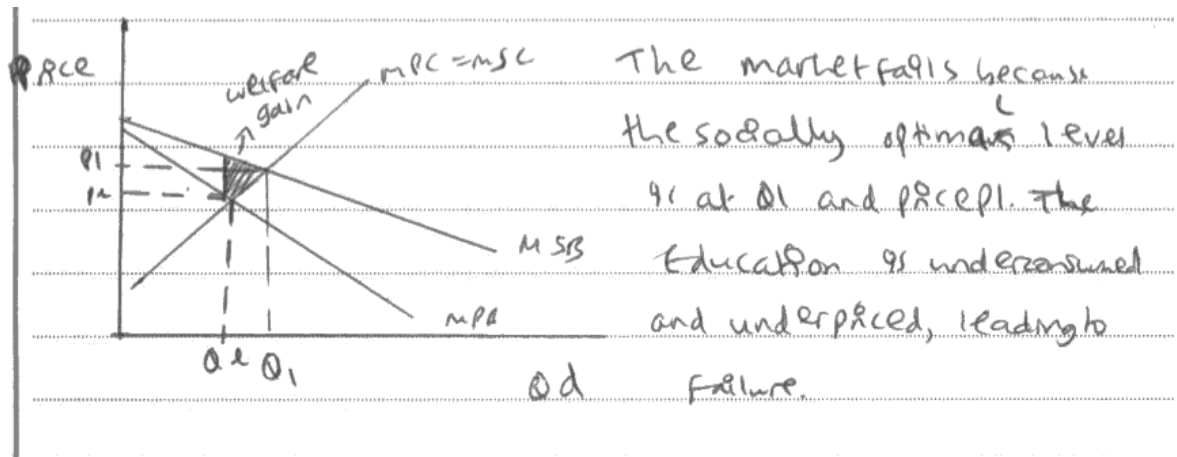 Price
welfare
gain
MPC = MSC
P1
Pe
MSB
MPB
Qe Q1
Qd
The market fails because
the socially optimal level
is at Q1 and price P1. The
Education is underconsumed
and underpriced, leading to
Failure.